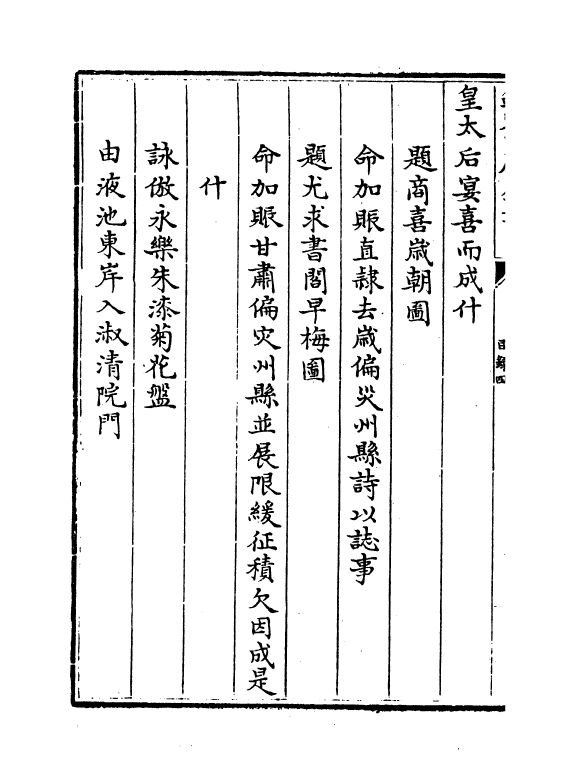 皇太后宴喜而成什
題商喜歲朝圖
命加賑直隸去歲偏災州縣詩以誌事
題尤求書閣早梅圖
命加賑甘肅偏災州縣並展限緩征積欠因成是
什
詠倣永樂朱漆菊花盤
由液池東岸入淑清院門
目錄四